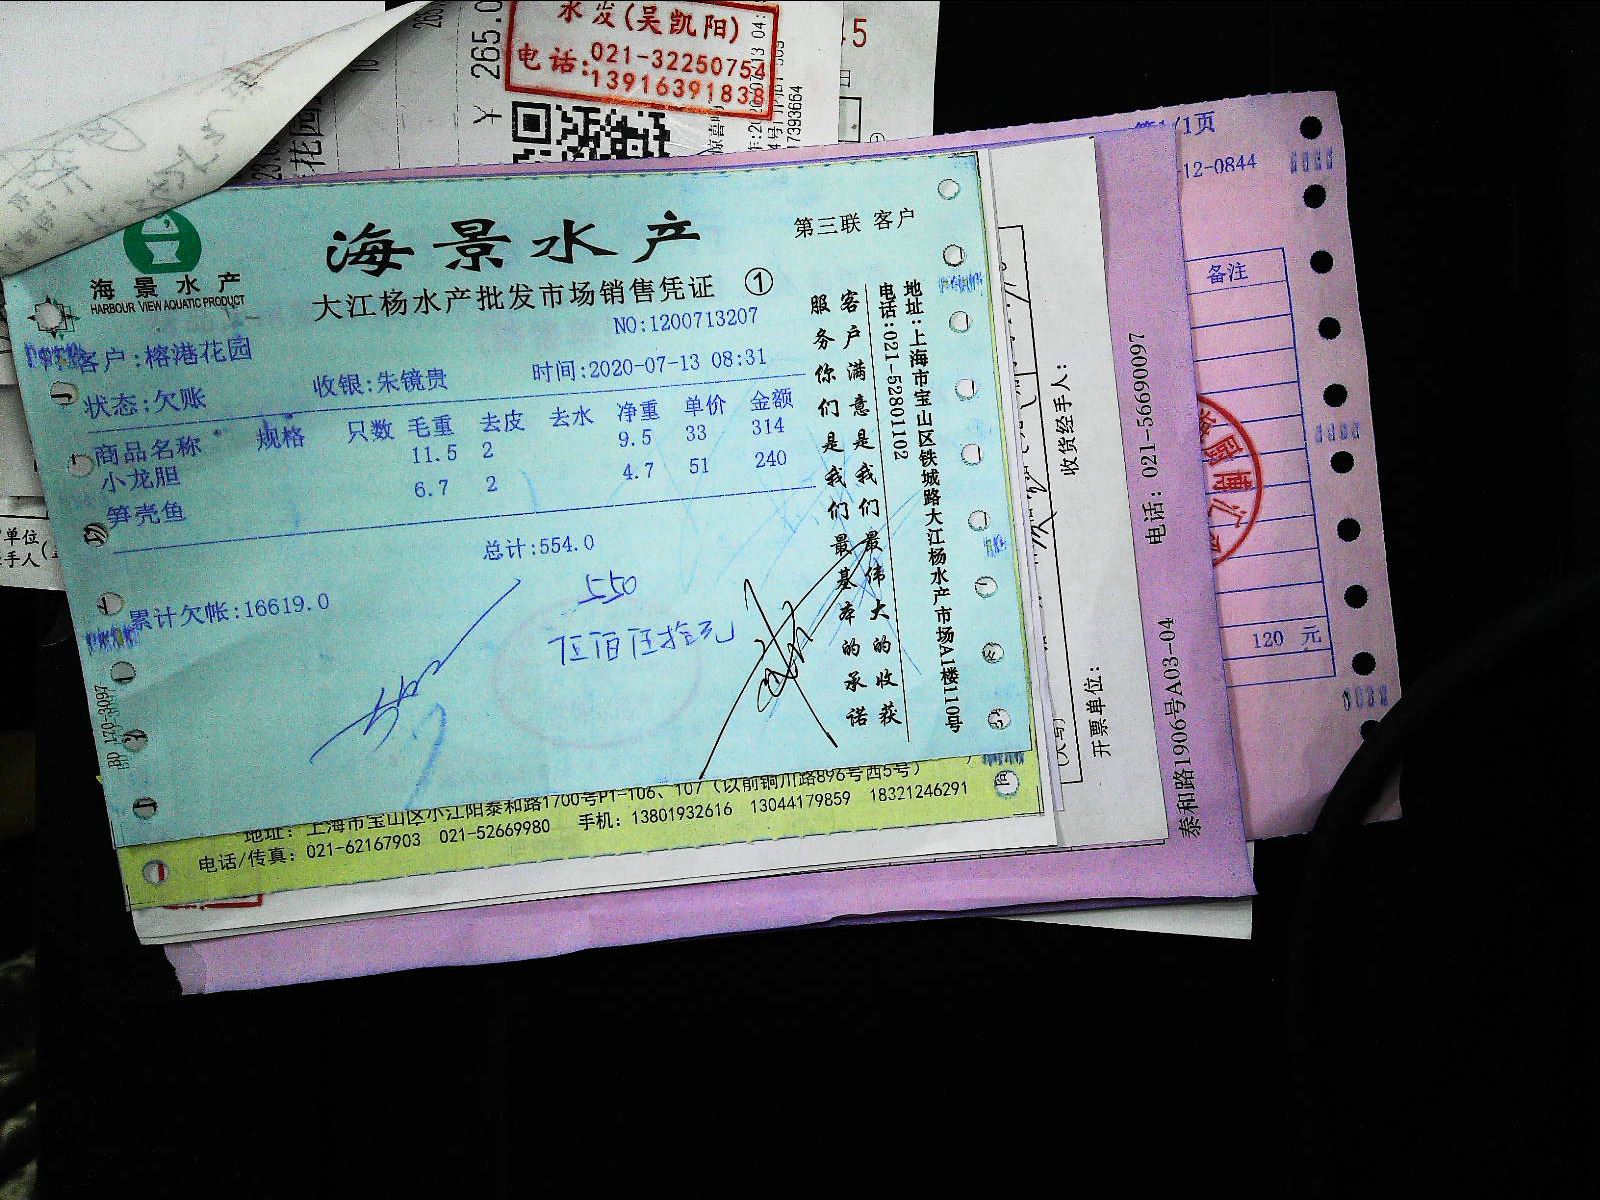 265.0
水发(吴凯阳)
电话:021-32250754
13916391838
45
第1/1页
12-0844
备注
120 元
海景水产
HARBOUR VIEW AQUATIC PRODUCT
海景水产
第三联 客户
大江杨水产批发市场销售凭证 ①
NO:1200713207
客户:榕港花园
状态:欠账 收银:朱镜贵 时间:2020-07-13 08:31
商品名称 规格 只数 毛重 去皮 去水 净重 单价 金额
小龙胆 11.5 2 9.5 33 314
笋壳鱼 6.7 2 4.7 51 240
总计:554.0
累计欠帐:16619.0
550
伍佰伍拾元
客户满意是我们最伟大的收获
服务你们是我们最基本的承诺
地址:上海市宝山区铁城路大江杨水产市场A1楼110号
电话:021-52801102
地址: 上海市宝山区小江阳泰和路1700号P1-106、107(以前铜川路896号西5号)
电话/传真: 021-62167903 021-52669980 手机: 13801932616 13044179859 18321246291
收货经手人:
开票单位:
电话: 021-56690097
泰和路1906号A03-04